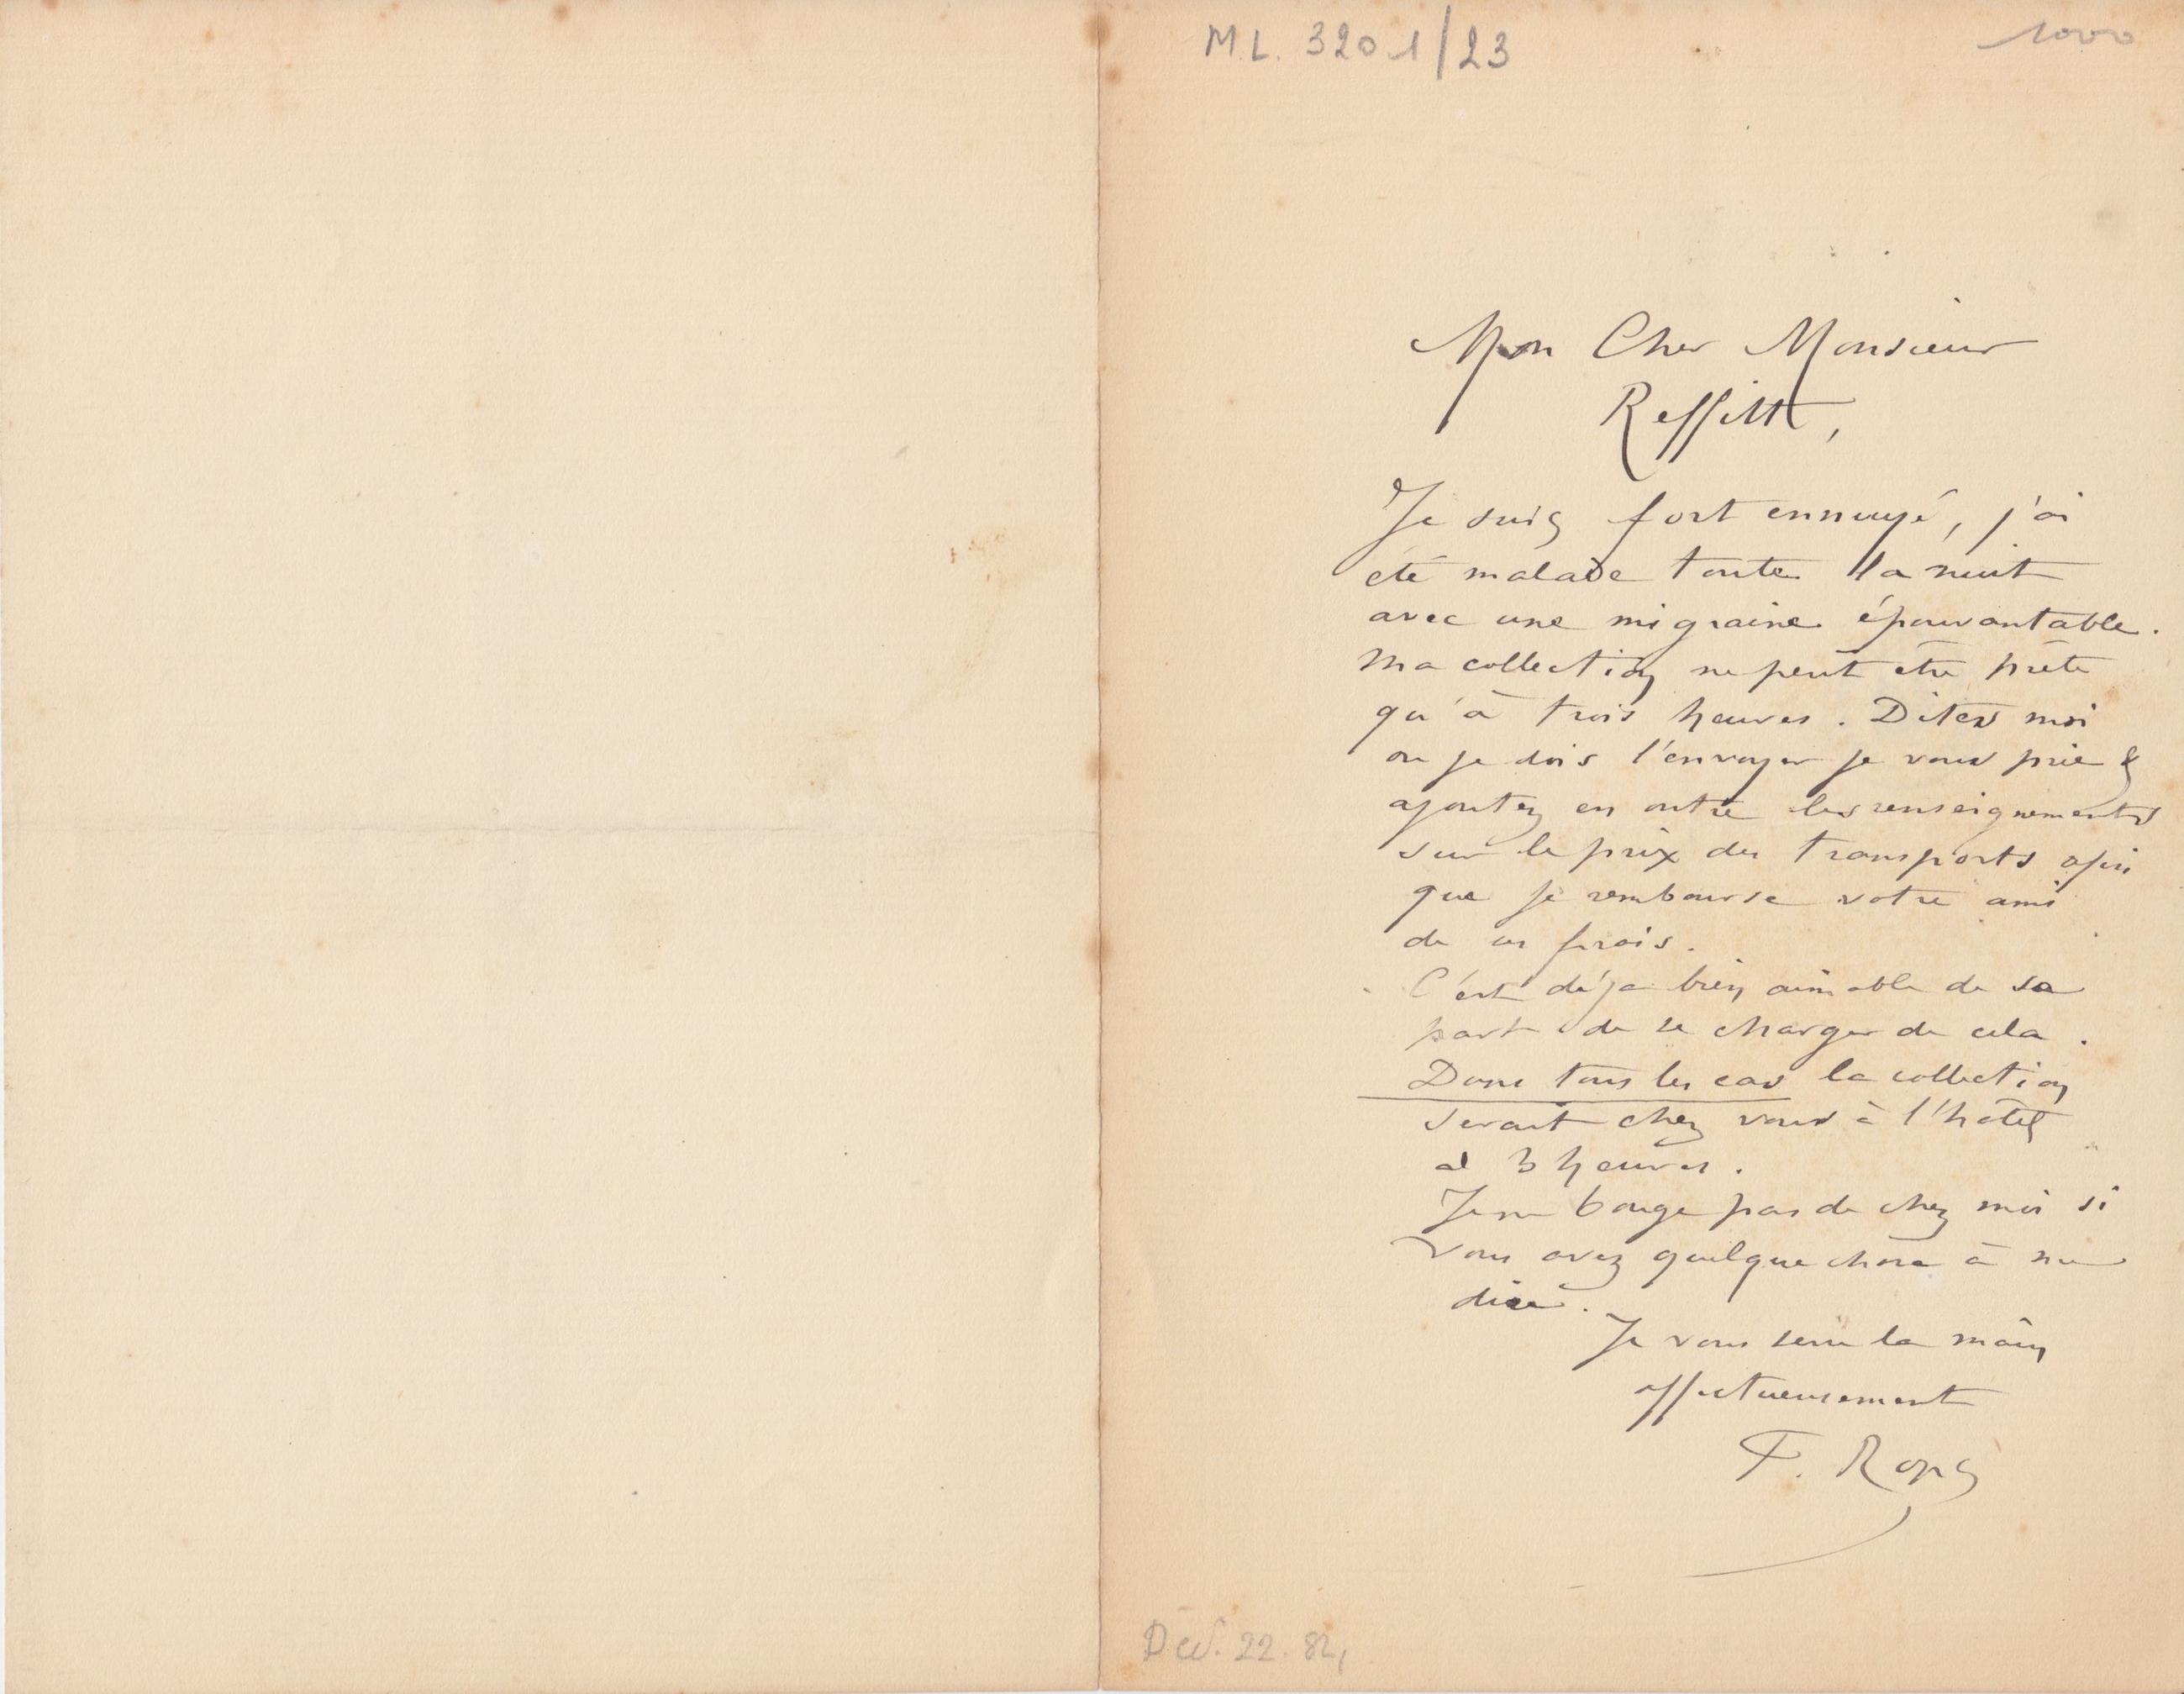 M.L. 3201/23
1000
Mon Cher Monsieur
Je suis fort ennuyé, j'ai
été malade toute la nuit
avec une migraine épouvantable.
Ma collection ne peut être prête
qu'à trois heures. Dites moi
ou je dois l'envoyer je vous prie &
ajoutez en outre les renseignements
sur le prix des transports afin
que je rembourse votre ami
de ces frais.
C'est déja bien aimable de sa
part de se charger de cela.
Dans tous les cas la collection
serait chez vous à l'hôtel
à 3 heures.
Je ne bouge pas de chez moi si
vous avez quelque chose à me
dire.
Je vous serre la main
affectueusement
F. Rops
22. 82,